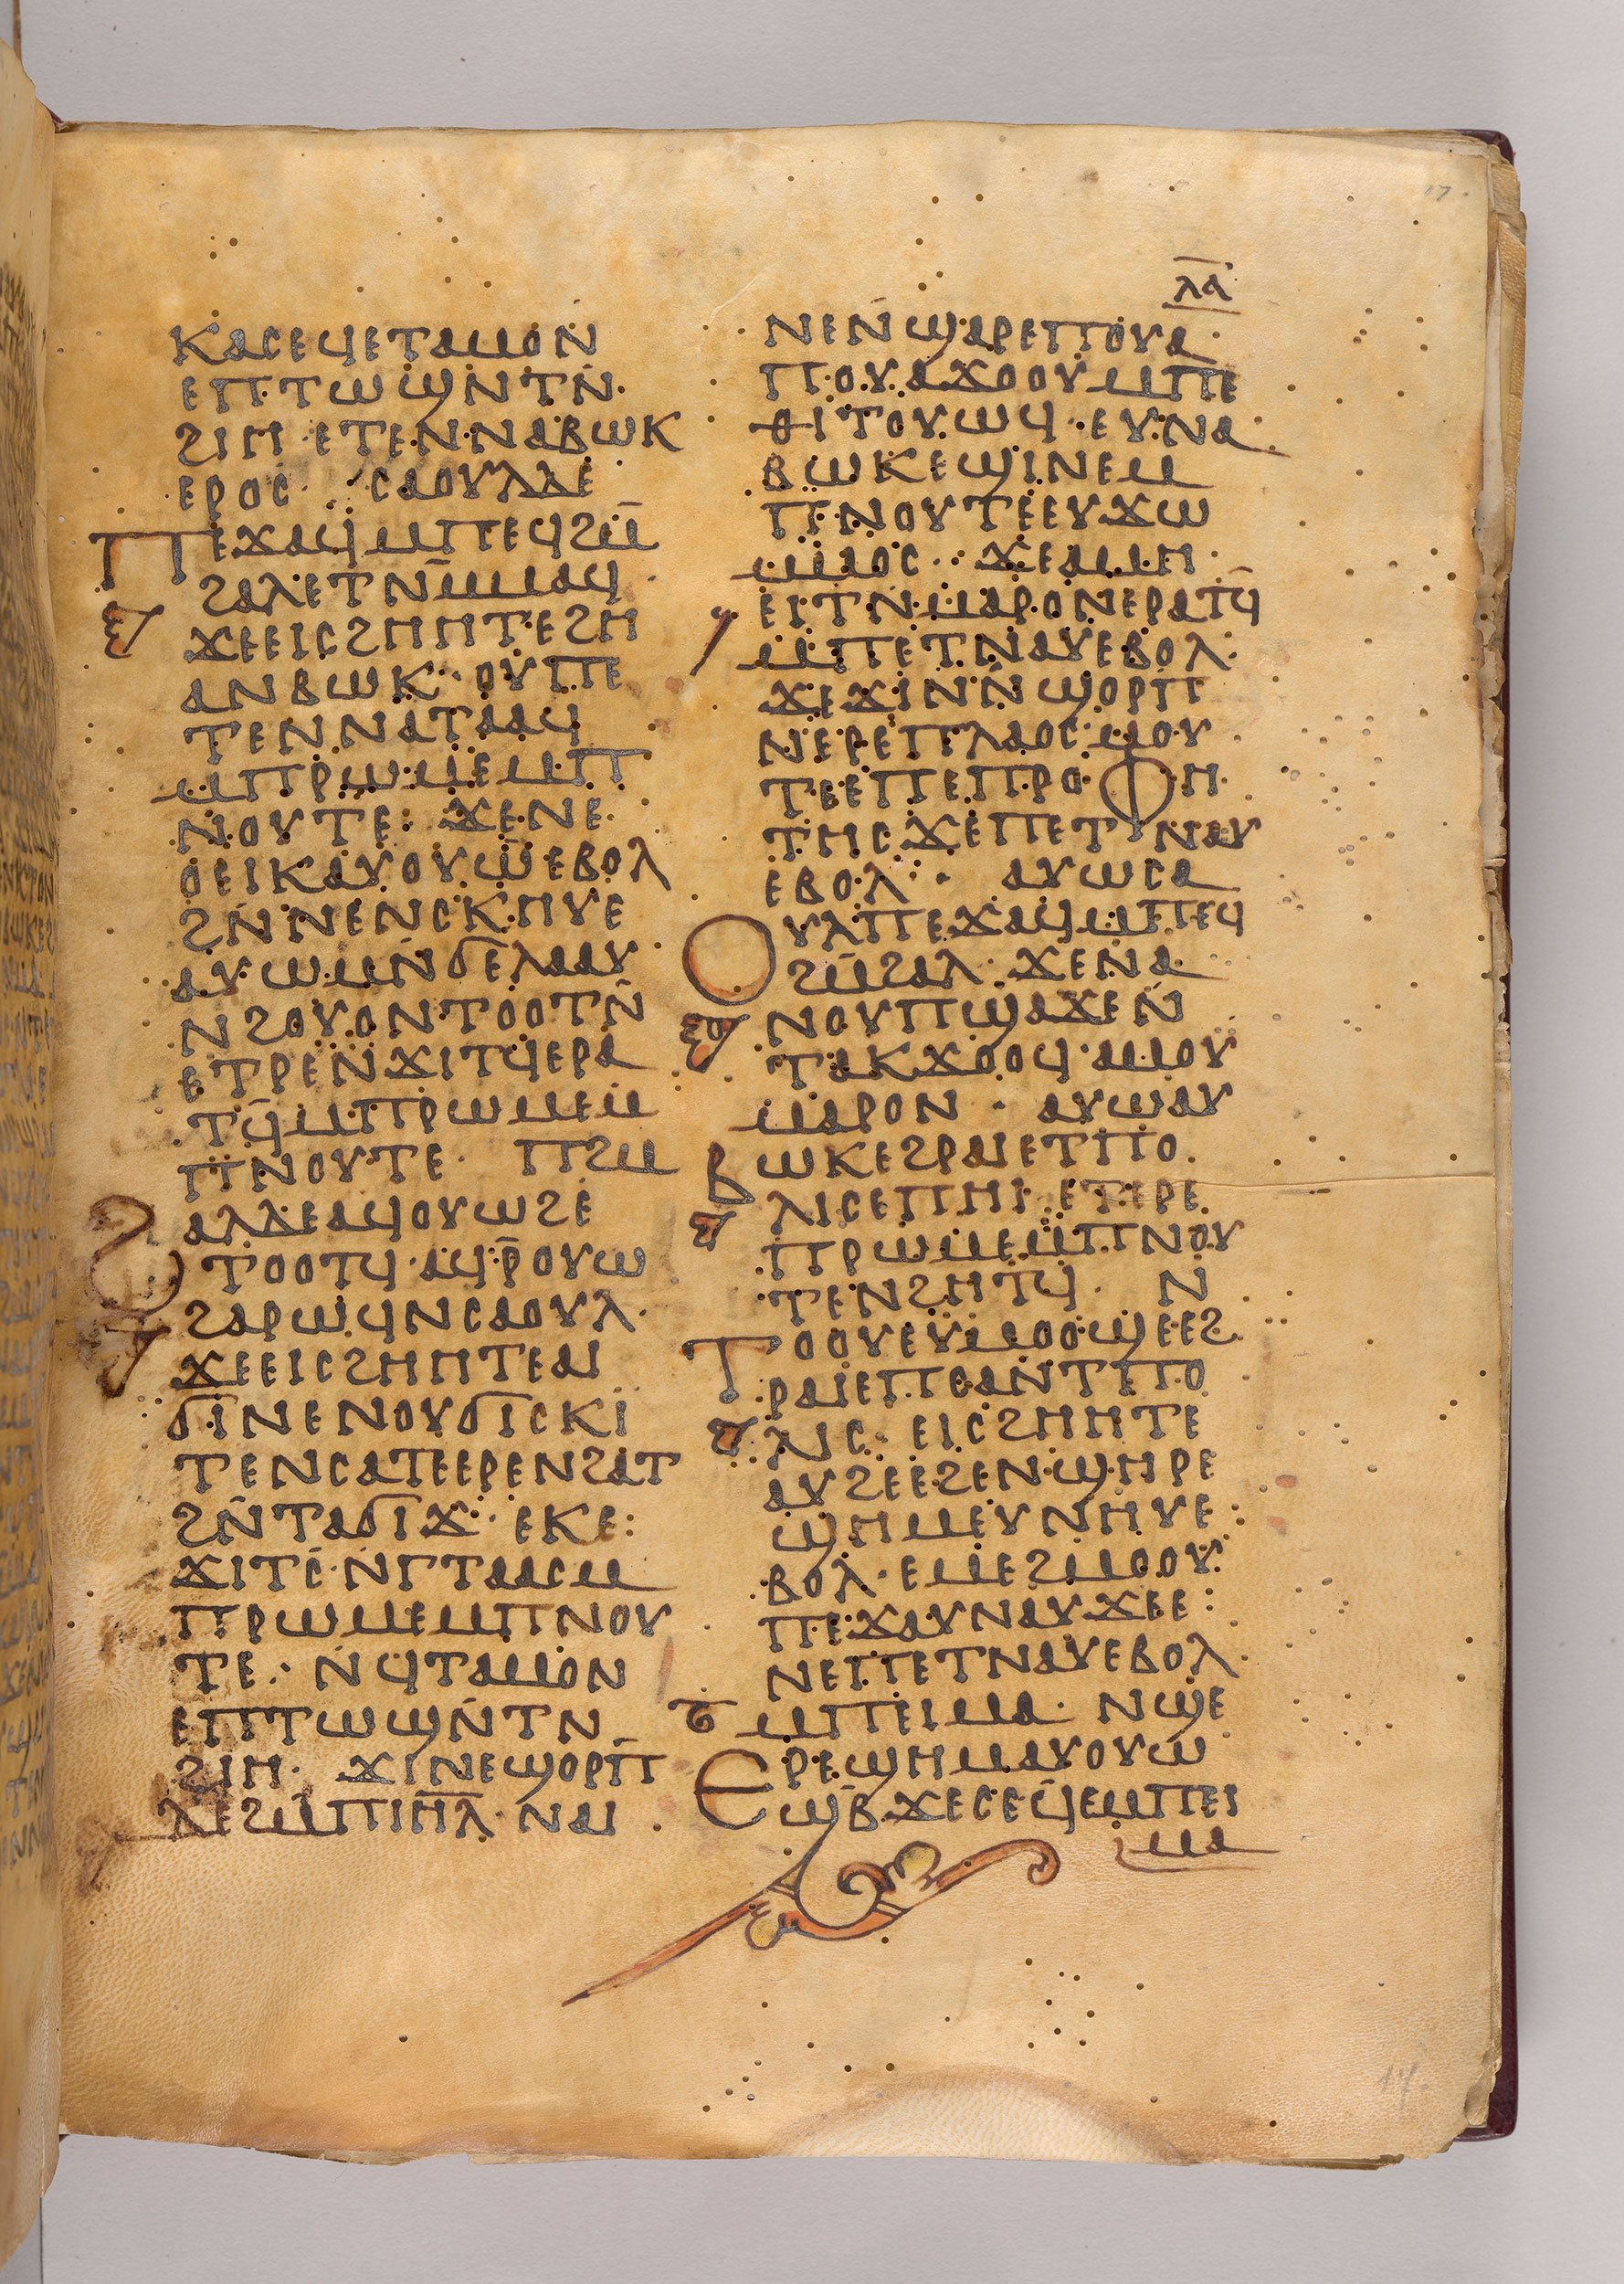 ⲗⲁ
ⲕⲁⲥⲉϥⲉⲧⲁⲙⲟⲛ
ⲉⲡⲧⲱϣⲛⲧⲛ·
ϩⲓⲏ·ⲉⲧⲉⲛⲛⲁⲃⲱⲕ
ⲉⲣⲟⲥ· ⲥⲁⲟⲩⲗⲇⲉ
ⲡⲉϫⲁϥⲙⲡⲉϥϩⲙ̄
ϩⲁⲗⲉⲧⲛⲙ̄ⲙⲁϥ·
ϫⲉⲉⲓⲥϩⲏⲏⲧⲉϩⲏ
ⲁⲛⲃⲱⲕ·ⲟⲩⲡⲉ
ⲧⲉⲛⲛⲁⲧⲁⲁϥ
ⲙⲡⲣⲱⲙⲉⲙⲡ
ⲛⲟⲩⲧⲉ: ϫⲉⲛⲉ·
ⲟⲉⲓⲕⲁⲩⲟⲩⲱⲉⲃⲟⲗ
ϩⲛ̄ⲛⲉⲛⲥⲕⲏⲩⲉ
ⲁⲩⲱⲙⲛ̄ϭⲉⲗⲁⲁⲩ
ⲛϩⲟⲩⲟⲛⲧⲟⲟⲧⲛ̄
ⲉⲧⲣⲉⲛϫⲓⲧϥⲉⲣⲁ
ⲧϥ̄ⲙⲡⲣⲱⲙⲉⲙ
ⲡⲛⲟⲩⲧⲉ· ⲡϩⲙ
ⲁⲗⲇⲉⲁϥⲟⲩⲱϩⲉ
ⲧⲟⲟⲧϥ·ⲁϥⲣ̄ⲟⲩⲱ
ϩⲁⲣⲱϥⲛⲥⲁⲟⲩⲗ·
ϫⲉⲉⲓⲥϩⲏⲏⲧⲉⲁⲓ
ϭⲓⲛⲉⲛⲟⲩϭⲓⲥⲕⲓ
ⲧⲉⲛⲥⲁⲧⲉⲉⲣⲉⲛϩⲁⲧ
ϩⲛ̄ⲧⲁϭⲓϫ·ⲉⲕⲉ:
ϫⲓⲧⲥ̄·ⲛⲅⲧⲁⲁⲥⲙ
ⲡⲣⲱⲙⲉⲙⲡⲛⲟⲩ
ⲧⲉ· ⲛ̄ϥⲧⲁⲙⲟⲛ
ⲉⲡⲧⲱϣⲛ̄ⲧⲛ
ϩⲓⲏ· ϫⲓⲛⲉϣⲟⲣⲡ̄
ⲇⲉϩⲙ̄ⲡⲓⲏ̄ⲗ·ⲛⲁⲓ
ⲛⲉⲛ̄ϣⲁⲣⲉⲡⲟⲩⲁ·
ⲡⲟⲩⲁϫⲟⲟⲩⲙⲡⲉ
ⲑⲓⲧⲟⲩⲱϥ·ⲉⲩⲛⲁ·
ⲃⲱⲕⲉϣⲓⲛⲉⲙ
ⲡⲛⲟⲩⲧⲉⲉⲩϫⲱ
ⲙⲙⲟⲥ· ϫⲉⲁⲙⲏ
ⲉⲓⲧⲛ·ⲙⲁⲣⲟⲛⲉⲣⲁⲧϥ̄
ⲙⲡⲉⲧⲛⲁⲩⲉⲃⲟⲗ·
ϫⲉϫⲓⲛⲛ̄ϣⲟⲣⲡ
ⲛⲉⲣⲉⲡⲗⲁⲟⲥⲙⲟⲩ
ⲧⲉⲉⲡⲉⲡⲣⲟ·ⲫⲏ·
ⲧⲏⲥϫⲉⲡⲉⲧⲛⲁⲩ
ⲉⲃⲟⲗ· ⲁⲩⲱⲥⲁ
ⲟⲩⲗⲡⲉϫⲁϥⲙⲡⲉϥ
ϩⲙ̄ϩⲁⲗ·ϫⲉⲛⲁ·
ⲛⲟⲩⲡϣⲁϫⲉⲛ̄
ⲧⲁⲕϫⲟⲟϥ·ⲁⲙⲟⲩ
ⲙⲁⲣⲟⲛ· ⲁⲩⲱⲁⲩ
ⲃⲱⲕⲉϩⲣⲁⲓⲉⲧⲡⲟ·
ⲗⲓⲥⲉⲡⲙⲓ·ⲉⲧⲉⲣⲉ
ⲡⲣⲱⲙⲉⲙⲡⲛⲟⲩ
ⲧⲉⲛϩⲏⲧϥ̄· ⲛ
ⲧⲟⲟⲩⲉⲩⲙⲟⲟϣⲉⲉϩ
ⲣⲁⲓⲉⲡⲥⲁⲛⲧⲡⲟ
ⲗⲓⲥ· ⲉⲓⲥϩⲏⲏⲧⲉ
ⲁⲩϩⲉⲉϩⲉⲛϣⲏⲣⲉ
ϣⲏⲙⲉⲩⲛⲏⲩⲉ:
ⲃⲟⲗ·ⲉⲙⲉϩⲙⲟⲟⲩ·
ⲡⲉϫⲁⲩⲛⲁⲩϫⲉⲉ:
ⲛⲉⲡⲉⲧⲛⲁⲩⲉⲃⲟⲗ·
ⲙⲡⲉⲓⲙⲁ· ⲛϣⲉ
ⲉⲣⲉϣⲏⲙⲁⲩⲟⲩⲱ
ϣⲃ̄·ϫⲉⲥⲉϥⲉⲙⲡⲉⲓ
ⲙⲁ